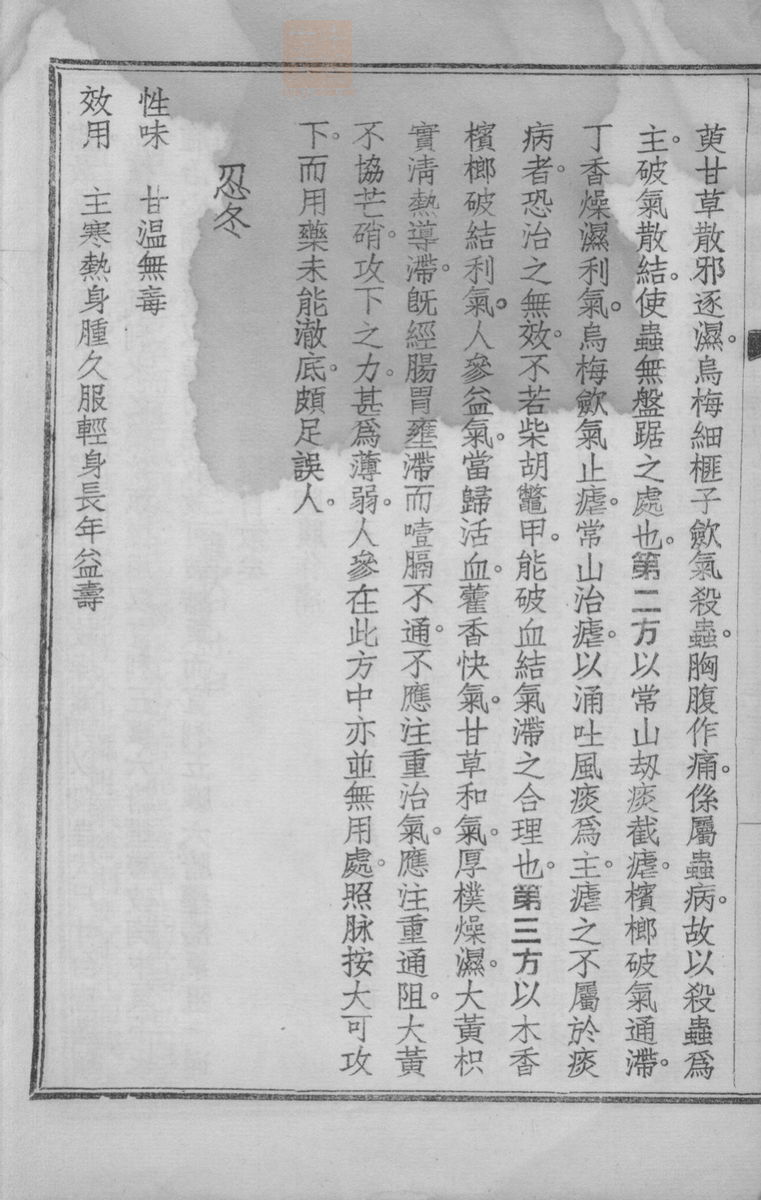 萸甘草散邪逐濕。烏梅細榧子歛氣殺蟲。胸腹作痛。係屬蟲病。故以殺蟲爲
主。破氣散結。使蟲無盤踞之處也。第二方以常山刼痰截瘧。檳榔破氣通滯。
丁香燥濕利氣。烏梅歛氣止瘧。常山治瘧。以涌吐風痰爲主。瘧之不屬於痰
病者。恐治之無效。不若柴胡鼈甲。能破血結氣滯之合理也。第三方以木香
檳榔破結利氣。人參益氣。當歸活血。藿香快氣。甘草和氣。厚樸燥濕。大黃枳
實清熱導滯。旣經腸胃壅滯而噎膈不通。不應注重治氣。應注重通阻。大黃
不協芒硝。攻下之力。甚爲薄弱。人參在此方中亦並無用處。照脉按大可攻
下。而用藥未能澈底。頗足誤人。
忍冬
性味　甘溫無毒
效用　主寒熱身腫久服輕身長年益壽